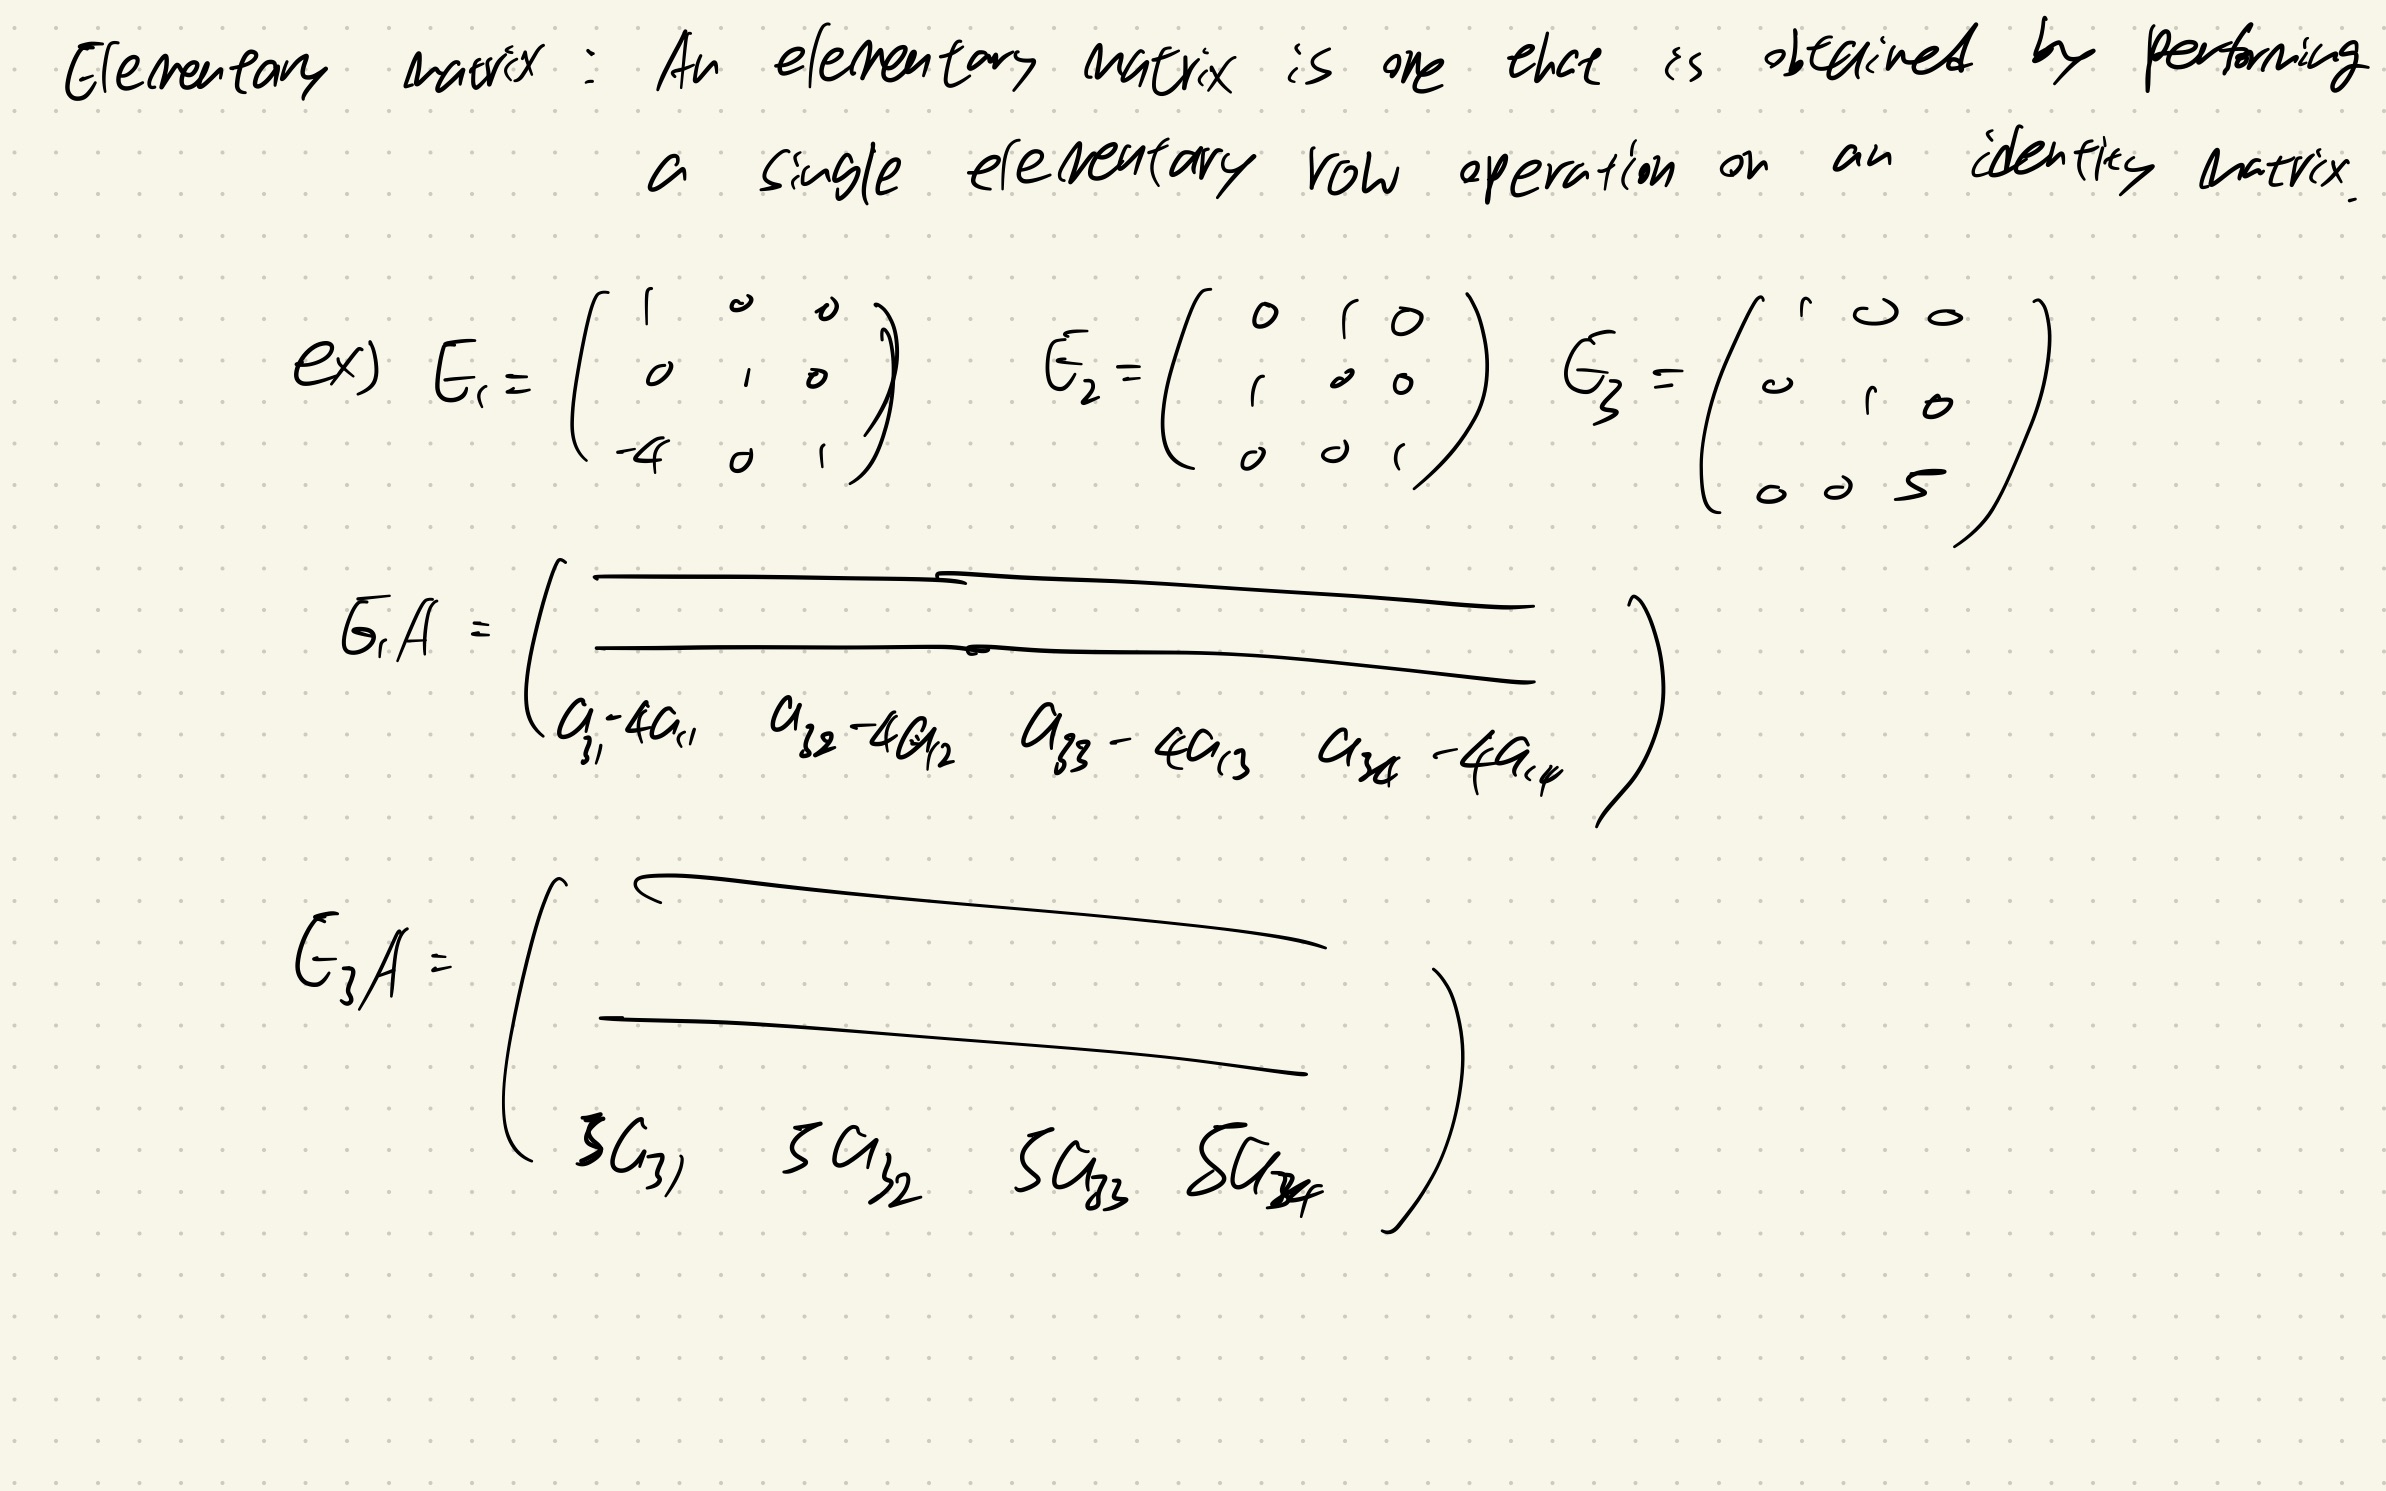 Elementary matrix : An elementary matrix is one that is obtained by performing
a single elementary row operation on an identity matrix.
ex) E₁ = ( 1 0 0 E₂ = ( 0 1 0 E₃ = ( 1 0 0
0 1 0 1 0 0 0 1 0
-4 0 1 ) 0 0 1 ) 0 0 5 )
E₁A = (
a₃₁-4a₁₁ a₃₂-4a₁₂ a₃₃-4a₁₃ a₃₄-4a₁₄ )
E₃A = (
5a₃₁ 5a₃₂ 5a₃₃ 5a₃₄ )